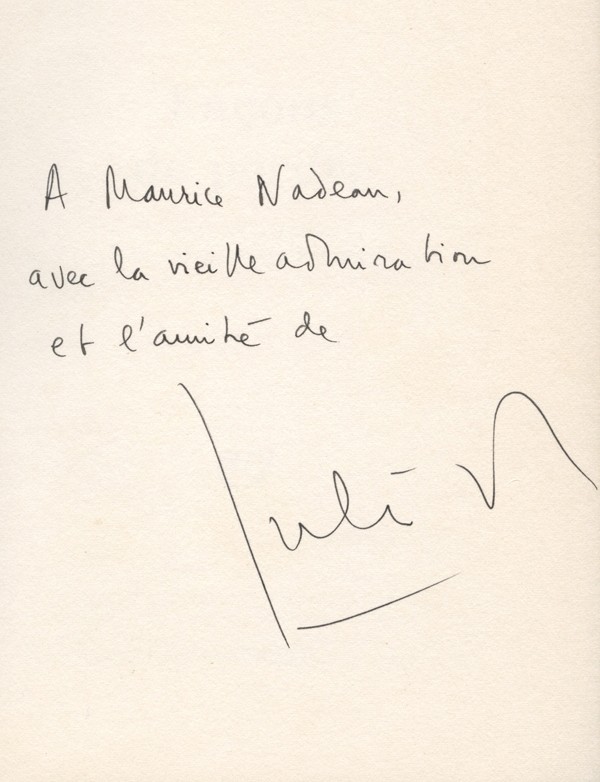 A Maurice Nadeau,
avec la vieille admiration
et l'amitié de